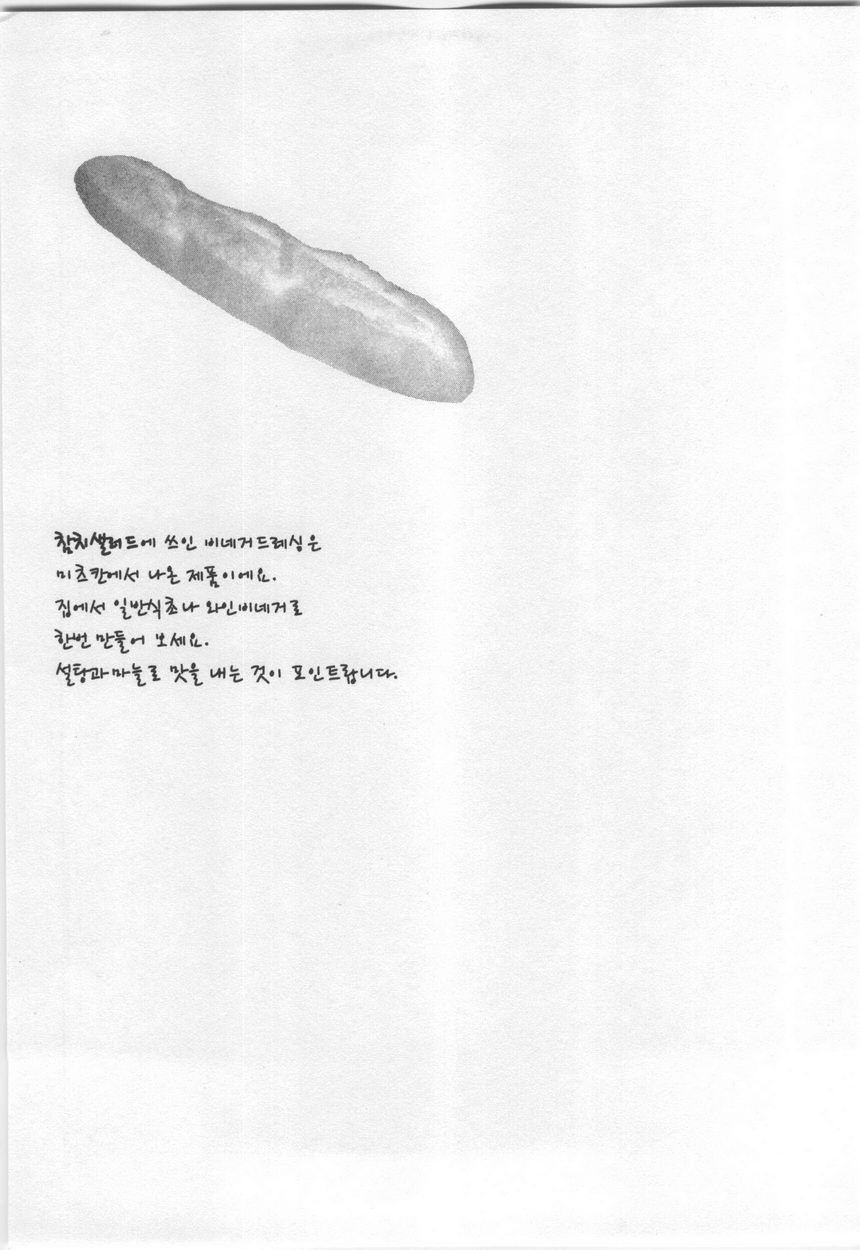 참치샐러드에 쓰인 비네거드레싱은
미츠칸에서 나온 제품이에요.
집에서 일반식초나 와인비네거로
한번 만들어 보세요.
설탕과 마늘로 맛을 내는 것이 포인트랍니다.